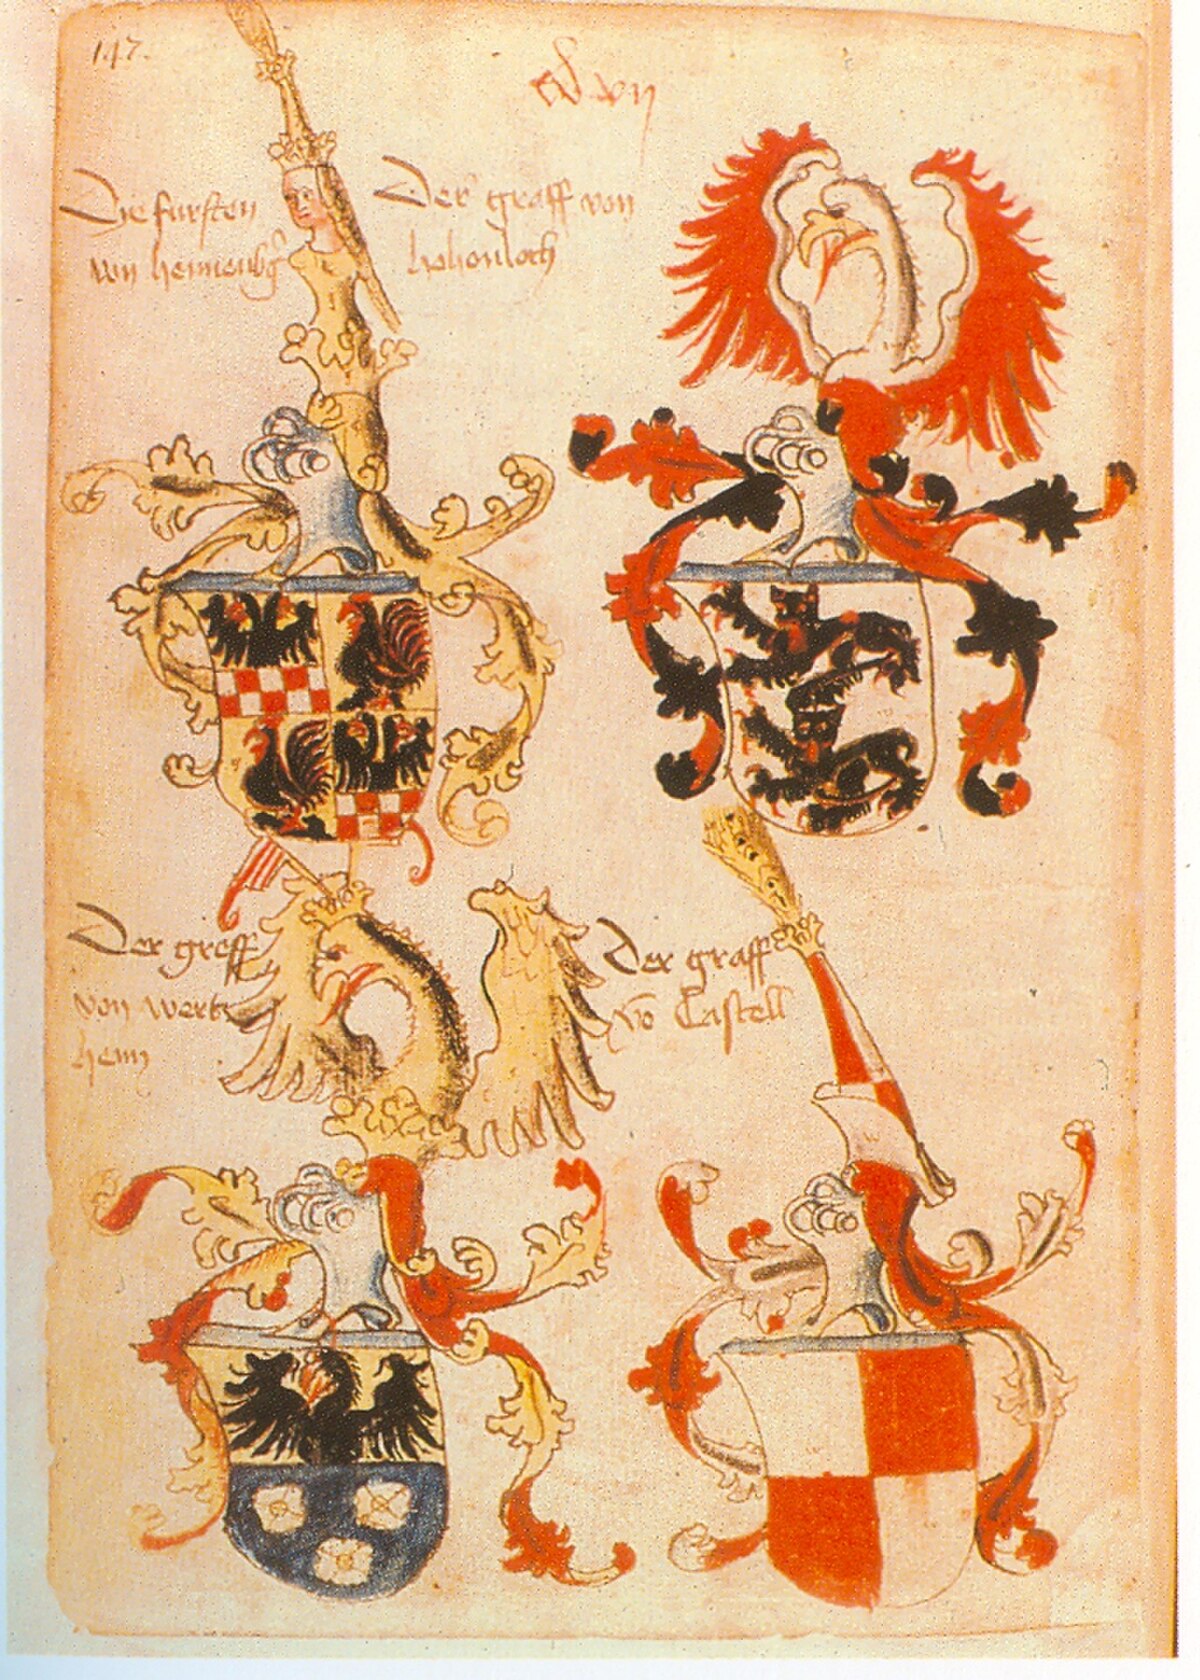 147.
Die fursten
von hennenbg
Der graff von
hohenloch
Der greff
von wert
heim
Der graff
vo Castell